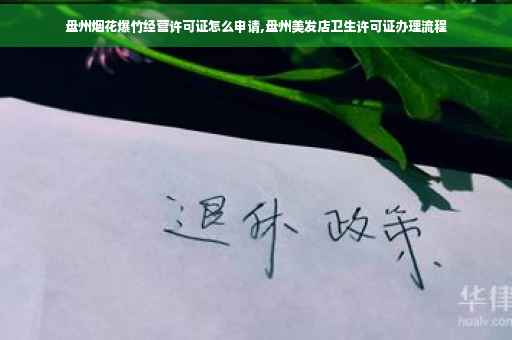 盘州烟花爆竹经营许可证怎么申请,盘州美发店卫生许可证办理流程
退休 政策
华律
hualv.com